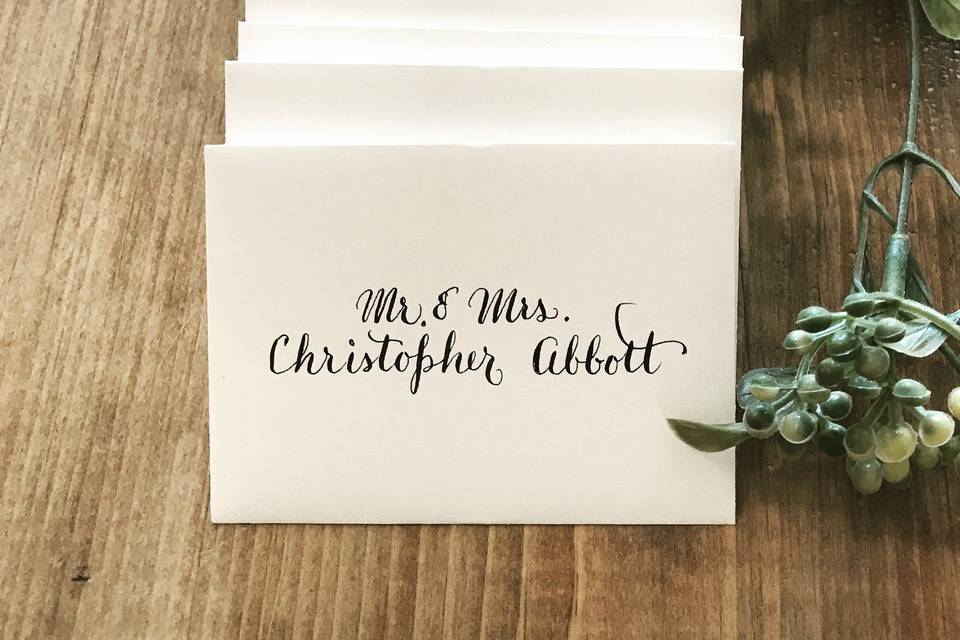 Mr. & Mrs.
Christopher Abbott